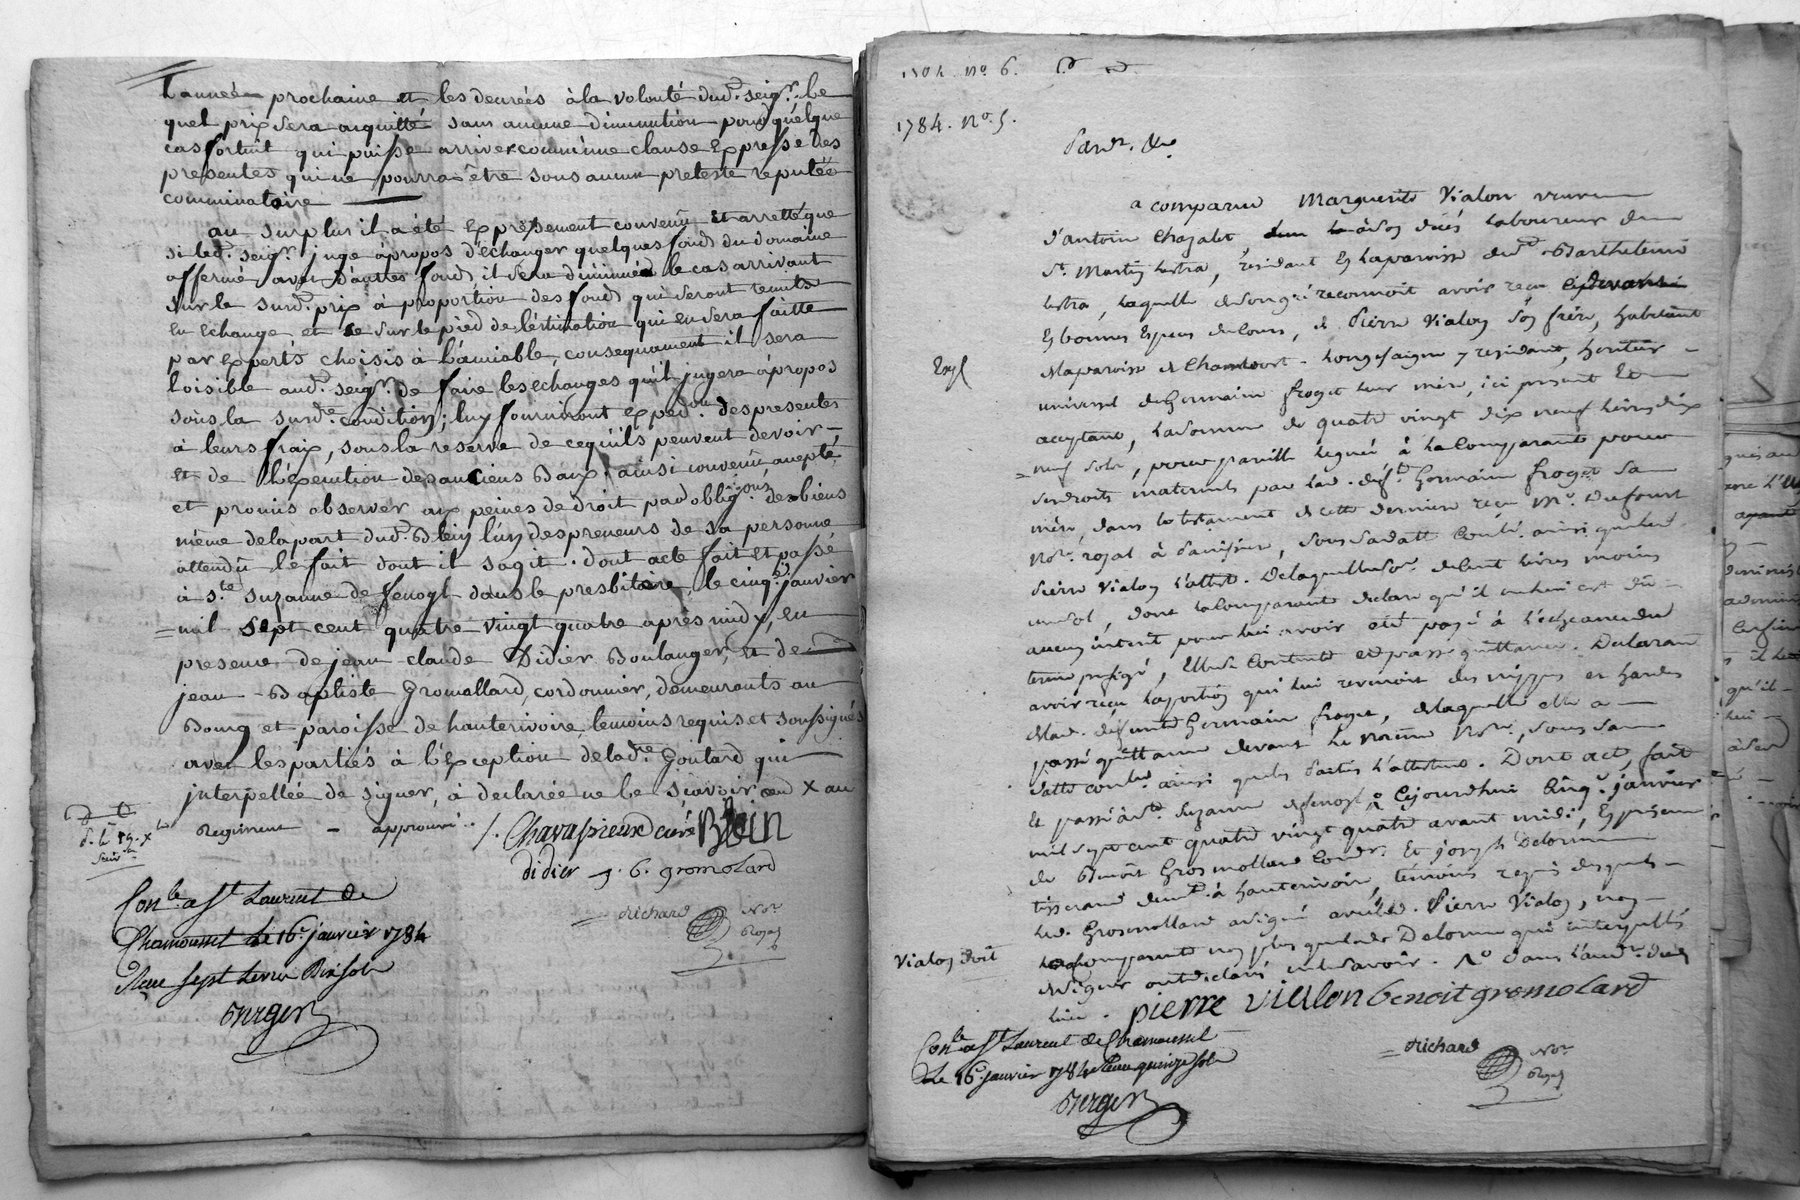 L'année prochaine et les denrées à la volonté dud. seigr. le
quel prix sera acquitté sans aucune diminution pour quelque
cas fortuit qui puisse arriver comme une clause Expresse des
presentes qui ne pourra être sous aucun preteste reputée
comminatoire
au surplus il a été Expressement convenu Et arretté que
si led. seigr. juge àpropos d'échanger quelques fonds du domaine
affermé avec d'autres fonds, il sera diminué le cas arrivant
sur le surd. prix à proportion des fonds qui seront remits
En Echange et sur le pied de l'éstimation qui En sera faitte
par Experts choisis à l'amiable, consequament il sera
loisible aud. seigr. de faire les echanges qu'il jugera àpropos
sous la surde. condition; luy fourniront expedon. des presentes
à leurs fraix, sous la reserve de cequ'ils peuvent devoir
et de l'éxecution des anciens Baux; ainsi convenu, accepté,
et promis observer aux peines de droit par obligons. des biens
même de la part dud. Blein l'un des preneurs de sa personne
attendu le fait dont il s'agit. dont acte fait Et passé
à ste. suzanne de fenoyl dans le presbitaire, le cinq janvier
mil sept cent quatre-vingt quatre après midy, En
presence de jean claude Didier Boulanger, Et de
jean-Baptiste Gromollard, cordonnier, demeurants au
Bourg et paroisse de hauterivoire, temoins requis et soussignés
avec les partiés à l'Exception de lade. Goutard qui
jnterpellée de signer, à declarée ne le sçavoir X au
Regiment - approuvé
Chavassieux curé Blein
didier j. b. gromolard
Richard Nore Royal
Conle. a St Laurent de
Chamousset Le 16e. janvier 1784
Reçu sept Livres Dix sols
Verger
1784. No. 6.
1784. No. 5.
Pardt. &c
a comparue Marguerite Vialon veuve
d'antoine Chazalet, laboureur de
St. Martin lestra, résidant En laparoisse dud. Barthelemi
lestra, laquelle desongré reconnoit avoir reçu
En bonnes Especes decours, de Pierre Vialon son frere, habitant
delaparoisse de Chambost-Longessaigne y residant, heritier
universel de Germaine froget leur mere, ici present Et
acceptant, lasomme de quatre vingt dix neuf livres dix
neuf sols, pour pareille leguée à la Comparante pour
sesdroits maternels par lad. deffte. Germaine froget sa
mere, dans le testament de cette derniere reçu Me. Dufournt
Nore. royal à Panissieres, sous sa datte Conlé. ainsi que led.
Pierre Vialon l'atteste. De laquelle some. de cent livres moins
un sol, dont la Comparante declare qu'il ne lui est dû
aucun interet pour lui avoir été payé à l'echeance du
terme prefigé, Elle se Contente et passe quittance. Declarant
avoir reçu la portion qui lui revenoit des nippes et hardes
de lad. defunte Germaine froget, de laquelle elle a
passé quittance devant Le même Nore., sous sa
datte conlée. ainsi que les Parties l'attestent. Dont act, fait
Et passé à Ste. Suzanne de fenoyl Cejourdhui Cinq. janvier
mil sept cent quatre vingt quatre avant midi, En presence
de Benoît Gromollard Cordr. Et joseph Delorme
tisserand demts. à hauterivoire, témoins requis desquels
led. Gromollard a signé avec led. Pierre Vialon, non
la Comparante non plus que led. Delorme qui interpellés
de signer ont declaré ne le savoir.
pierre vialon benoit gromolard
Vialon doit
Conle. a St Laurent de Chamousset
Le 16e. janvier 1784 Reçu quinze sols
Verger
Richard Nore Royal